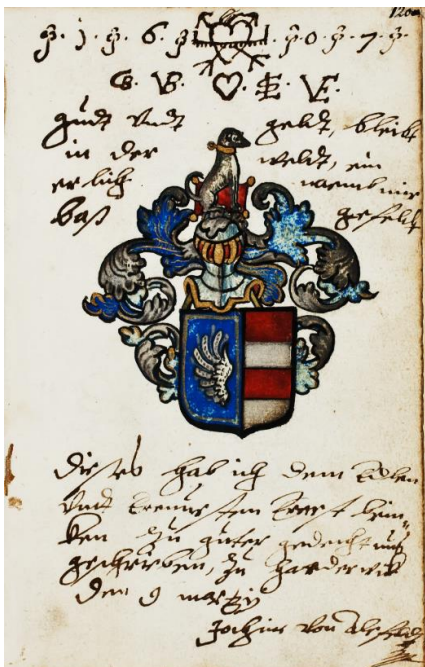 120
3 · 1 · 3 · 6 · 3 · 3 · 0 · 3 · 7 · 3
G · B · V · E
gudt vndt geldt, bleibt
in der weldt, ein
erlich namb mir
baß gefeldt
Dieses hab ich dem Edlen
vndt Ernuesten
zu guter gedechtnuß
geschrieben, zu Harderwik
den 9 martij
Jochim von